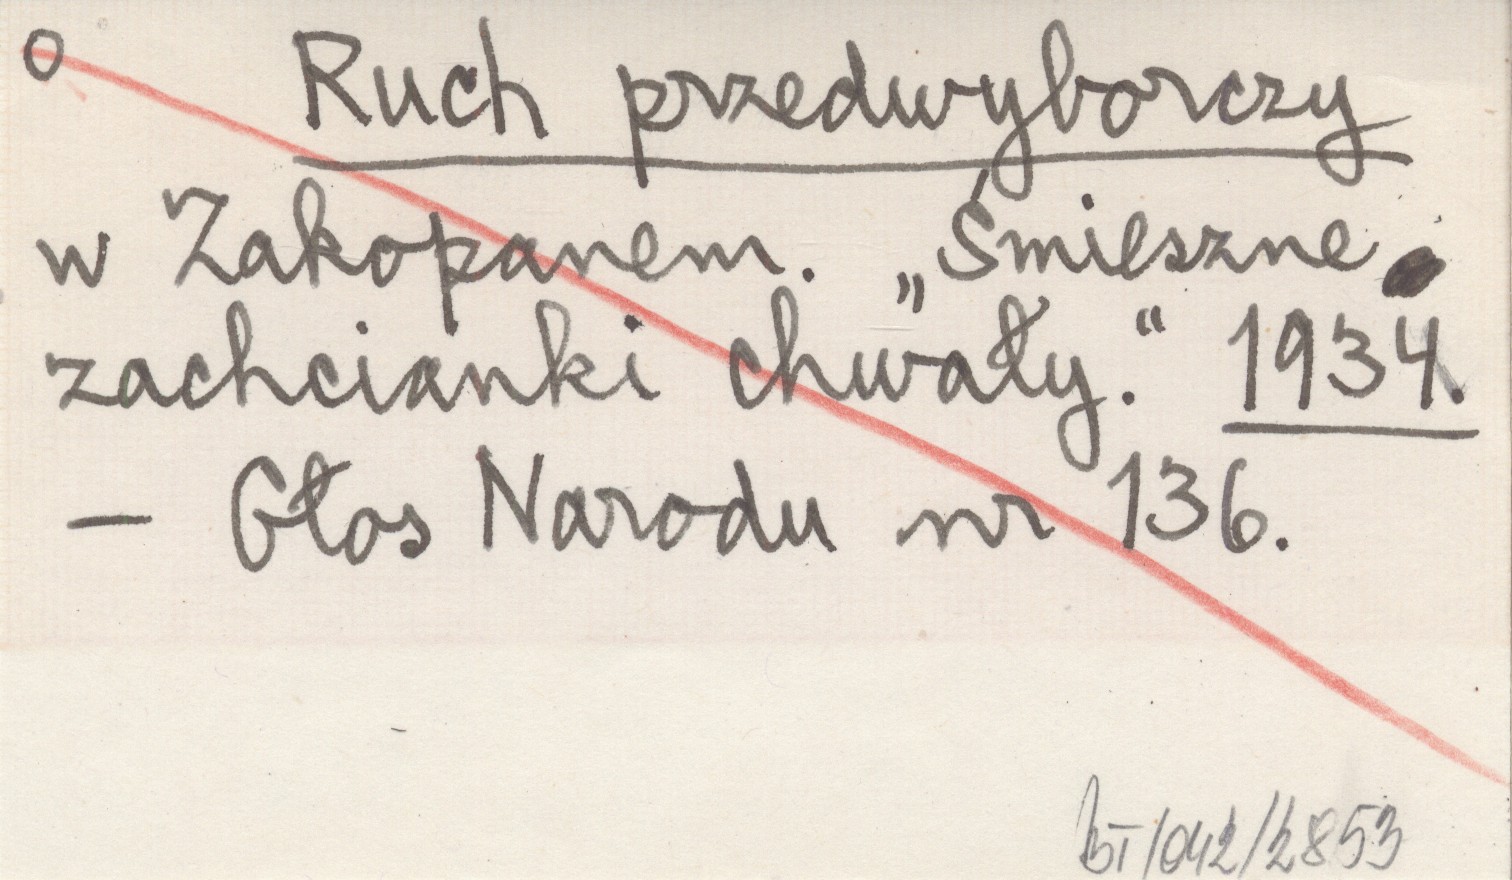 o Ruch przedwyborczy
w Zakopanem. „Śmieszne
zachcianki chwały.“ 1934.
— Głos Narodu nr 136.
BT/042/2853